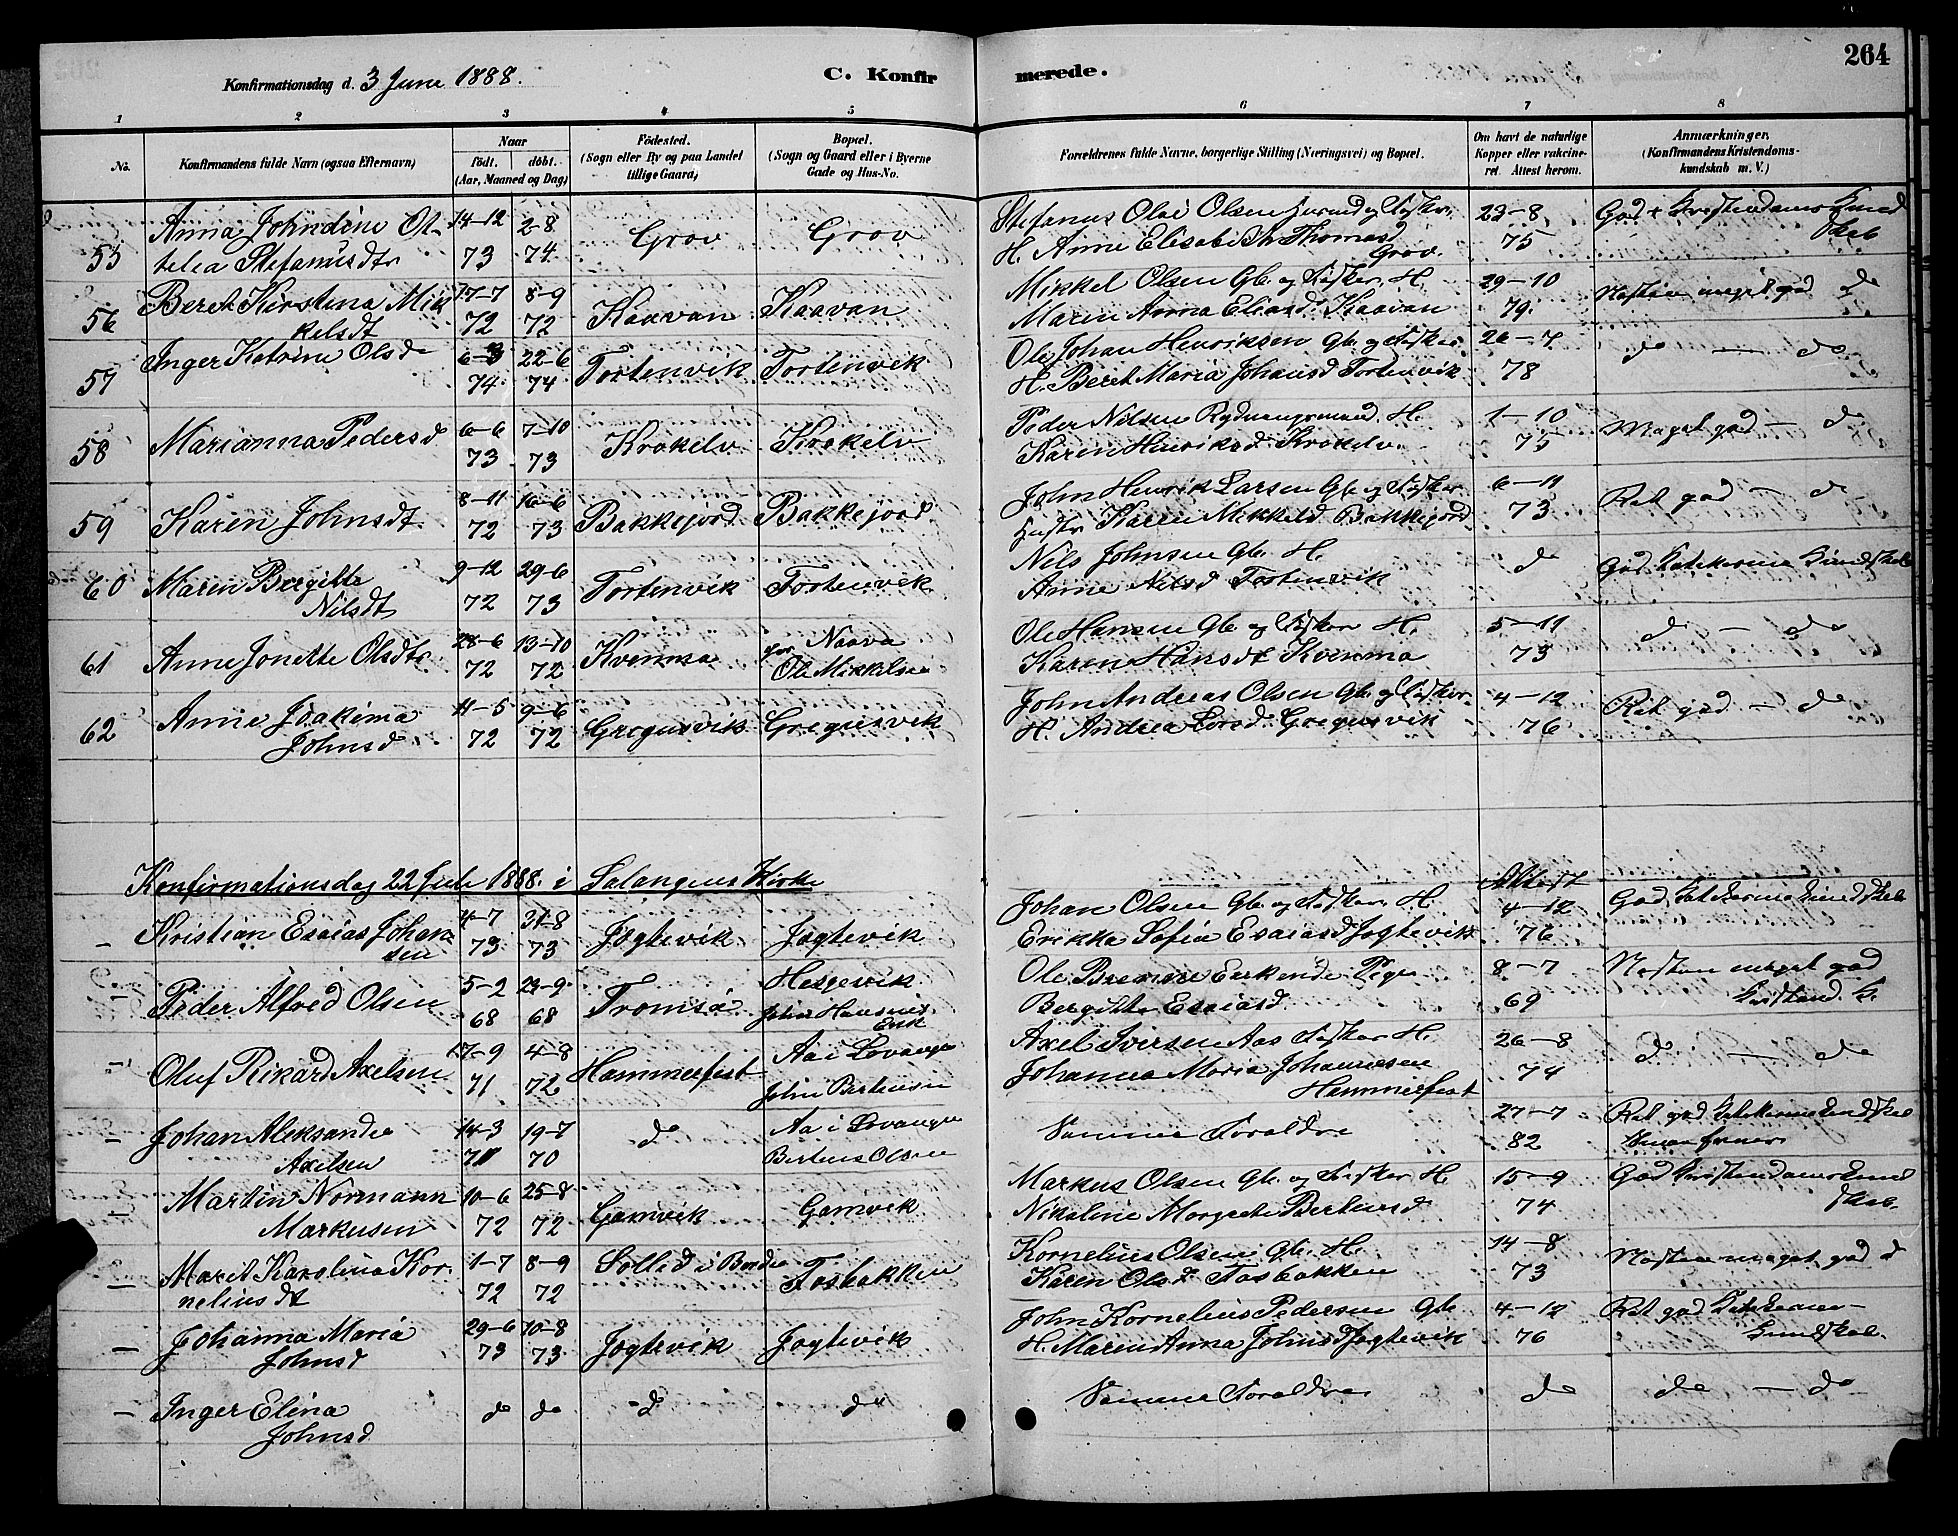 264
Konfirmationsdag d. 3 June 1888. C. Konfir merede.
1 2 3 4 5 6 7 8
No. Konfirmandens fulde Navn (ogsaa Efternavn) Naar födt. döbt. (Aar, Maaned og Dag) Födested. (Sogn eller By og paa Landet tillige Gaard) Bopæl. (Sogn og Gaard eller i Byerne Gade og Hus-No. Forældrenes fulde Navne, borgerlige Stilling (Næringsvei) og Bopæl. Om havt de naturlige Kopper eller vakcineret. Attest herom. Anmærkninger, (Konfirmandens Kristendomskundskab m. V.)
Anna Johndine Ot- 14-12 2-8 Grov Grov Stefanus Olai Olsen og Fisker 23-8 God Kristendoms Kund
55 telea Stefanusdtr 73 74 H. Anne Elisabeth Thomasd Grov. 75 skab
Beret Kirstina Mik 17-7 8-9 Kaavan Kaavan Mikkel Olsen Gb. og Fisker. H. 29-10 Næsten meget god do
56 kelsdt 72 72 Maren Anna Eliasd. Kaavan 79.
57 Inger Katrine Olsd 6-3 22-6 Tortenvik Tortenvik Ole Johan Henriksen Gb. og Fisker 26-7 do — do
74 74 H. Beret Maria Johansd Tortenvik 78
58 Marianna Pedersd 6-6 7-10 Krokelv Krokelv Peder Nilsen Rydningsmand. H. 1-10 Meget god — do
73 73 Karen Henriksd Krokelv. 75
59 Karen Johnsdt 8-11 16-6 Bakkejord Bakkejord John Henrik Larsen Gb. og Fisker 6-11 Ret god — do
72 73 Hustr Karen Mikkelsd Bakkejord 73
60 Maren Bregitte 9-12 29-6 Tortenvik Tortenvik Nils Johnsen Gb. H. do God Katekesme Kundskab
Nilsdt 72 73 Anne Nilsd Tortenvik
61 Anne Jonette Olsdtr 28-6 13-10 Kvenmo for Naava Ole Hansen Gb. og Fisker H. 5-11 do — do
72 72 Ole Mikkelsen Karen Hansdt Kvenmo 73
62 Anne Joakima 11-5 9-6 Gregusvik Gregusvik John Andreas Olsen Gb. og Fisker 4-12 Ret god — do
Johnsd 72 72 H. Andrea Larsd. Gregusvik 76
Konfirmationsdag 22 Juli 1888. i Salangens Kirke Attest
Kristian Esaias Johan 4-7 31-8 Jogtevik Jogtevik Johan Olsen Gb. og Fisker. H. 4-12 God Katekesme Kundskab
sen 73 73 Erikka Sofia Esaiasd Jogtevik 76
Peder Alfred Olsen 5-2 29-9 Tromsø Hesjevik Ole Enke Pige 8-7 Næsten meget god
68 68 John Hansens Enk Bergitte Esaiasd. 69 Kristend. K.
Oluf Rikard Axelsen 17-9 4-8 Hammerfest Aa i Lovangen Axel Iversen Aas Fisker H. 26-8 do — do
71 72 John Bertinsen Johanna Maria Johannesen Hammerfest 74
Johan Aleksander 14-3 19-7 do Aa i Lovangen Samme Foraldre 27-7 Ret god Katekesme Kundskab
Axelsen 70 70 Bertens Olsen 82
Martin Normann 10-6 25-8 Gamvik Gamvik Markus Olsen Gb. og Fisker H. 15-9 God Kristendomskund
Markusen 72 72 Nikoline Margrete Bertinsd 74 skab.
Maret Karolina Kor- 1-7 8-9 Solled i Fosbakken Kornelius Olsen Gb. H. 14-8 Næsten meget god d
neliusdt 72 72 Karen Olsd Fosbakken 73
Johanna Maria 29-6 10-8 Jogtevik Jogtevik John Kornelius Pedersen Gb. 4-12 Ret god Katekesme-
Johnsd 73 73 H. Maren Anna Johnsd Jogtevik 76 Kundskab.
Inger Elina do do d do Samme Foraldre do do — do
Johnsd